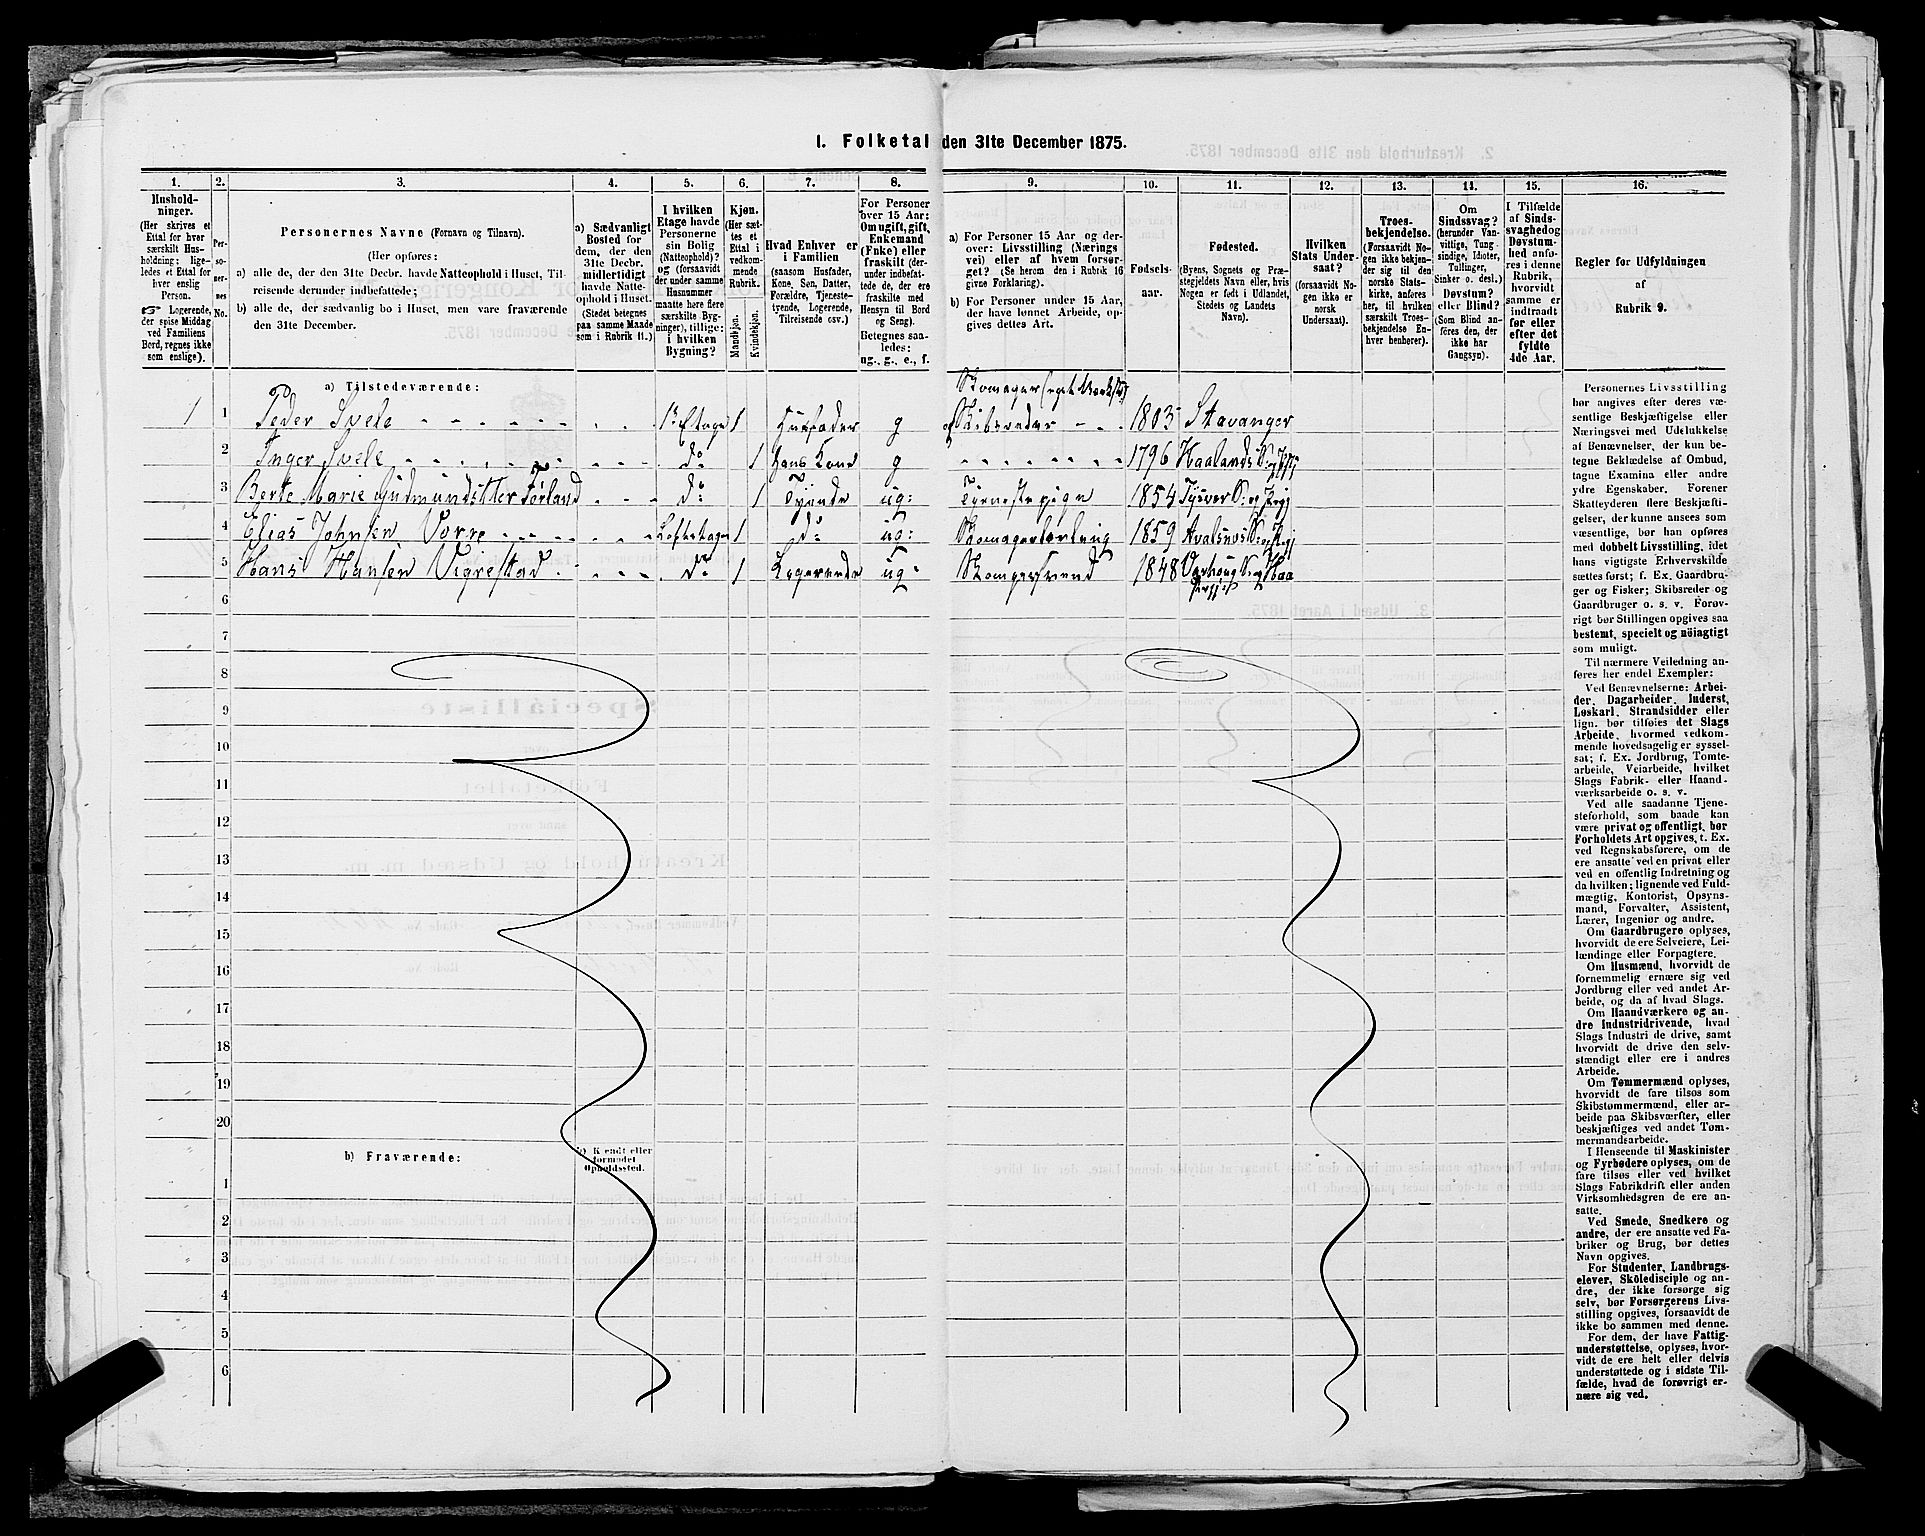 1. Folketal den 31te December 1875.
1. 2. 3. 4. 5. 6. 7. 8. 9. 10. 11. 12. 13. 14. 15. 16.
Hushold-
ninger.
(Her skrives et
Ettal for hver
særskilt Hus-
holdning; lige-
ledes et Ettal for
hver enslig
Person.
☞ Logerende,
der spise Middag
ved Familiens
Bord, regnes ikke
som enslige).
Per-
so-
ner-
nes
No.
Personernes Navne (Fornavn og Tilnavn).
(Her opføres:
a) alle de, der den 31te Decbr. havde Natteophold i Huset, Til-
reisende derunder indbefattede;
b) alle de, der sædvanlig bo i Huset, men vare fraværende
den 31te December.
a) Sædvanligt
Bosted for
dem, der den
31te Decbr.
midlertidigt
havde Natte-
ophold i Huset.
(Stedet betegnes
paa samme Maade
som i Rubrik 11.)
I hvilken
Etage havde
Personerne
sin Bolig
(Natteophold)?
og (forsaavidt
der under samme
Husnummer
maatte høre flere
særskilte Byg-
ninger), tillige:
i hvilken
Bygning?
Kjøn.
(Her sæt-
tes et
Ettal i
vedkom-
mende
Rubrik.
Mandkjøn.
Kvindekjøn.
Hvad Enhver er
i Familien
(saasom Husfader,
Kone, Søn, Datter,
Forældre, Tjeneste-
tyende, Logerende,
Tilreisende osv.)
For Personer
over 15 Aar:
Om ugift, gift,
Enkemand
(Enke) eller
fraskilt (der-
under indbefat-
tede de, der ere
fraskilte med
Hensyn til Bord
og Seng).
Betegnes saa-
ledes:
ug., g., e., f.
a) For Personer 15 Aar og der-
over: Livsstilling (Nærings
vei) eller af hvem forsør-
get? (Se herom den i Rubrik 16
givne Forklaring).
b) For Personer under 15 Aar,
der have lønnet Arbeide, op-
gives dettes Art.
Fødsels-
aar.
Fødested.
(Byens, Sognets og Præ-
stegjeldets Navn eller, hvis
Nogen er født i Udlandet,
Stedets og Landets
Navn).
Hvilken
Stats Under-
saat?
(forsaavidt No-
gen ikke er
norsk
Undersaat).
Troes-
bekjendelse.
(Forsaavidt No-
gen ikke bekjen-
der sig til den
norske Stats-
kirke, anføres
her, til hvilken
særskilt Troes-
bekjendelse En-
hver henhører).
Om
Sindssvag?
(herunder Van-
vittige, Tung
sindige, Idioter,
Tullinger,
Sinker o. desl.)
Døvstum?
eller Blind?
(Som Blind an-
føres den, der
ikke har
Gangsyn).
I Tilfælde
af Sinds-
svaghed og
Døvstum-
hed anfø-
res i denne
Rubrik,
hvorvidt
samme er
indtraadt
før eller
efter det
fyldte
4de Aar.
Regler for Udfyldningen
af
Rubrik 9.
a) Tilstedeværende:
1 1 Peder Svele 1ste Etage 1 Husfader g Skomager (egt Værksted) og Skibsreder 1803 Stavanger
2 Inger Svele do 1 hans Kone g 1796 Haalands
3 Berte Marie Gudmundsdtter Førland do 1 Tjende ug: Tjenestepige 1854 Tysvær S: og Prgj
4 Elias Johnsen Vorre Loftetagen 1 do ug: Skomagerlærling 1859 Avalsnæs S: og Prgj
5 Hans Hansen Vigrestad do 1 Logerende ug: Skomagersvend 1848 Varhoug S: og Haa
6
7
8
9
10
11
12
13
14
15
16
17
18
19
20
b) Fraværende:
b) Kjendt eller
formodet
Opholdssted.
1
2
3
4
5
6
Personernes Livsstilling
bør angives efter deres væ-
sentlige Beskjæftigelse eller
Næringsvei med Udelukkelse
af Benævnelser, der kun be-
tegne Beklædelse af Ombud,
tagne Examina eller andre
ydre Egenskaber. Forener
Skatteyderen flere Beskjæfti-
gelser, der kunne ansees som
væsentlige, bør han opføres
med dobbelt Livsstilling, idet
hans vigtigste Erhvervskilde
sættes først; f. Ex. Gaardbru-
ger og Fisker; Skibsreder og
Gaardbruger o. s. v. Forøv-
rigt bør Stillingen opgives saa
bestemt, specielt og nöiagtigt
som muligt.
Til nærmere Veiledning an-
føres her endel Exempler:
Ved Benævnelserne: Arbei-
der, Dagarbeider, Inderst,
Løskarl, Strandsidder eller
lign. bør tilføies det Slags
Arbeide, hvormed vedkom-
mende hovedsagelig er syssel-
sat; f. Ex. Jordbrug, Tomte-
arbeide, Veiarbeide, hvilket
Slags Fabrik- eller Haand-
værksarbeide o. s. v.
Ved alle saadanne Tjene-
steforhold, som baade kan
være privat og offentligt, bør
Forholdets Art opgives, t. Ex.
ved Regnskabsførere, om de
ere ansatte ved en privat eller
ved en offentlig Indretning og
da hvilken; lignende ved Fuld-
mægtig, Kontorist, Opsyns-
mand, Forvalter, Assistent,
Lærer, Ingeniør og andre.
Om Gaardbrugere oplyses,
hvorvidt de ere Selveiere, Lei-
lændinge eller Forpagtere.
Om Husmænd, hvorvidt de
fornemmelig ernære sig ved
Jordbrug eller ved andet Ar-
beide, og da af hvad Slags.
Om Haandværkere og an-
dre Industridrivende, hvad
Slags Industri de drive, samt
hvorvidt de drive den selv-
stændigt eller ere i andres
Arbeide.
Om Tømmermænd oplyses,
hvorvidt de fare tilsøs som
Skibstømmermænd, eller ar-
beide paa Skibsværfter, eller
beskjæftiges ved andet Tøm-
mermandsarbeide.
I Henseende til Maskinister
og Fyrbødere oplyses, om de
fare tilsøs eller ved hvilket
Slags Fabrikdrift eller anden
Virksomhedsgren de ere an-
satte.
Ved Smede, Snedkere og
andre, der ere ansatte ved Fa-
briker og Brug, bør dettes
Navn opgives.
For Studenter, Landbrugs-
elever, Skoledisciple og an-
dre, der ikke forsørge sig
selv, bør Forsørgerens Livs-
stilling opgives, forsaavidt de
ikke bo sammen med denne.
For dem, der have Fattig-
understøttelse, oplyses, hvor-
vidt de ere helt eller delvis
understøttede og i sidste Til-
fælde, hvad de forøvrigt er-
nære sig ved.